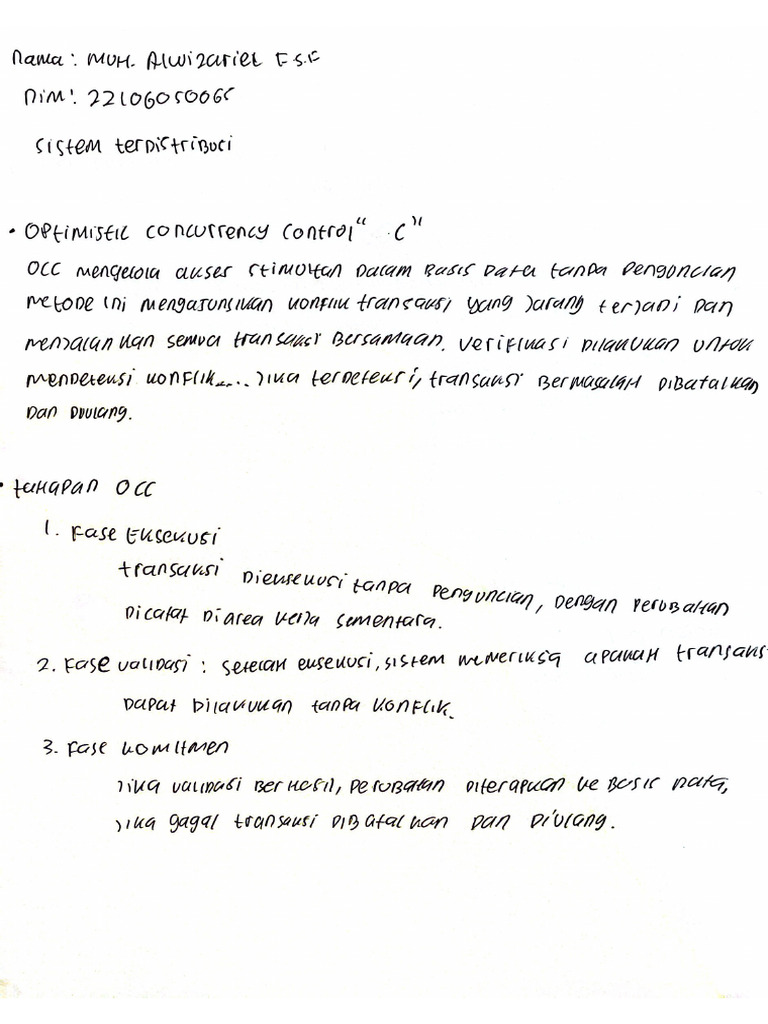 Nama : MUH. Alwizariel F.S.F
NIM : 22106050065
Sistem terdistribusi
• Optimistic Concurrency Control " C "
OCC mengelola akses stimultan dalam Basis Data tanpa Penguncian
Metode ini mengasunsikan konflik transaksi yang jarang terjadi dan
menjalankan semua transaksi Bersamaan. Verifikasi Dilakukan untuk
mendeteksi konflik.... Jika terdeteksi, transaksi Bermasalah Dibatalkan
dan Diulang.
• tahapan OCC
1. Fase Eksekusi
transaksi Dieksekusi tanpa Penguncian, Dengan Perubahan
Dicatat Diarea kerja sementara.
2. Fase validasi : Setelah eksekusi, sistem memeriksa apakah transaks
Dapat Dilakukan tanpa konflik.
3. Fase komitmen
Jika validasi Berhasil, Perubahan Diterapkan ke Basis Data,
Jika gagal transaksi Dibatalkan Dan Diulang.